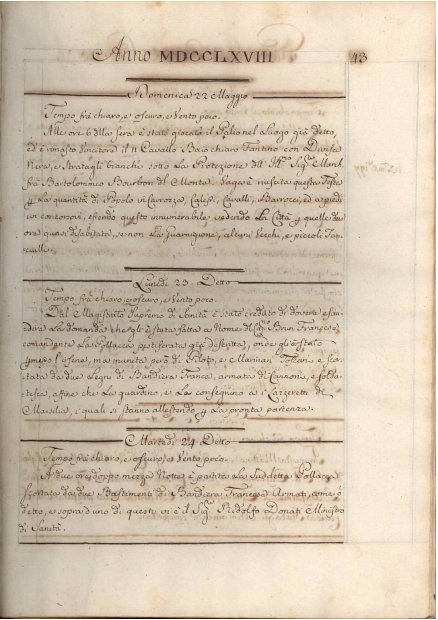 Anno MDCCLXVIII 43
Domenica 22 Maggio
Tempo frà chiaro, e oscuro, e Vento poco.
Alle ore 6 della sera è stato giocato il Palio nel Luogo già detto,
ed è rimasto vincitore il Cavallo Baio chiaro Fantino con Divisa
Nera, e Stratagli bianchi sotto la Protezione dell' Ill.mo Sig.r March.
frà Bartolommeo Bourbon del Monte
La quantità di Popolo in Carrozza, Calessi, Cavalli, Barrocci, ed a piedi
essendo questo innumerabile, vedendo La Città
ore quasi disabitata, se non La Guarnigione, alcuni Vecchi, e piccoli Fan-
ciulli.
Lunedì 23 Detto
Tempo frà chiaro, e oscuro, e Vento poco.
Dal Magistrato Supremo di Sanità è stato creduto di dovere esau-
dire La domanda che gli è stata fatta a Nome del Brun Francese
comandante La Pollacca pestiferata già descritta, onde
munita però di Piloto, e Marinari Toscani, e scor-
tata da due Legni di Bandiera Franca, armata di Cannoni, e solda-
tesca, a fine che La guardino, e La consegnino a i Lazzeretti di
Marsilia, i quali si stanno allestendo La pronta partenza.
Martedì 24 Detto
Tempo frà chiaro, e oscuro, e Vento poco.
A due ore doppo mezza Notte è partita La suddetta Pollacca
scortata da due Bastimenti di Bandiera Francese Armati, come è
detto, e sopra d'uno di questi vi è il Sig.r Ridolfo Donati Ministro
di Sanità.